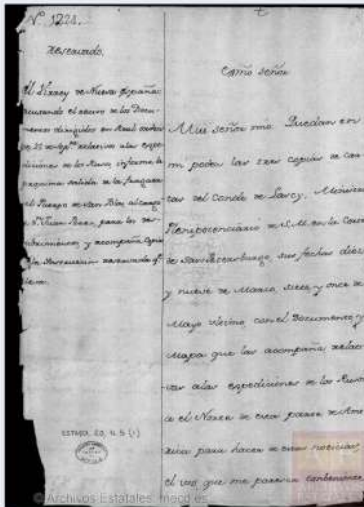 Nº 1221.
Reservado.
El Virrey de Nueva España
acusando el recivo de los Docu-
mentos dirigidos en Real orden
de 25 de Sep.re relativos alas espe-
diciones de los Rusos, informa la
proxima salida de la fragata
el Puerto de San Blas, al cargo
de D.n Juan Perez, para los des-
cubrimientos, y acompaña Copia
de la Instruccion reservada q.e
lleva.
ESTADO, 20, N. 5 (1)
Exmo Señor
Mui señor mio. Quedan en
mi poder las tres copias de car-
tas del Conde de Lascy, Ministro
Plenipotenciario de S.M. en la Corte
de San Petersburgo, sus fechas diez
y nueve de Marzo, siete, y once de
Mayo ultimo, con el Documento, y
Mapa que las acompaña, relati-
vas alas espediciones de los Rusos
a el Norte de esta parte de Ame-
rica para hacer de estas noticias,
el uso que me paresca conveniente
© Archivos Estatales, mecd.es